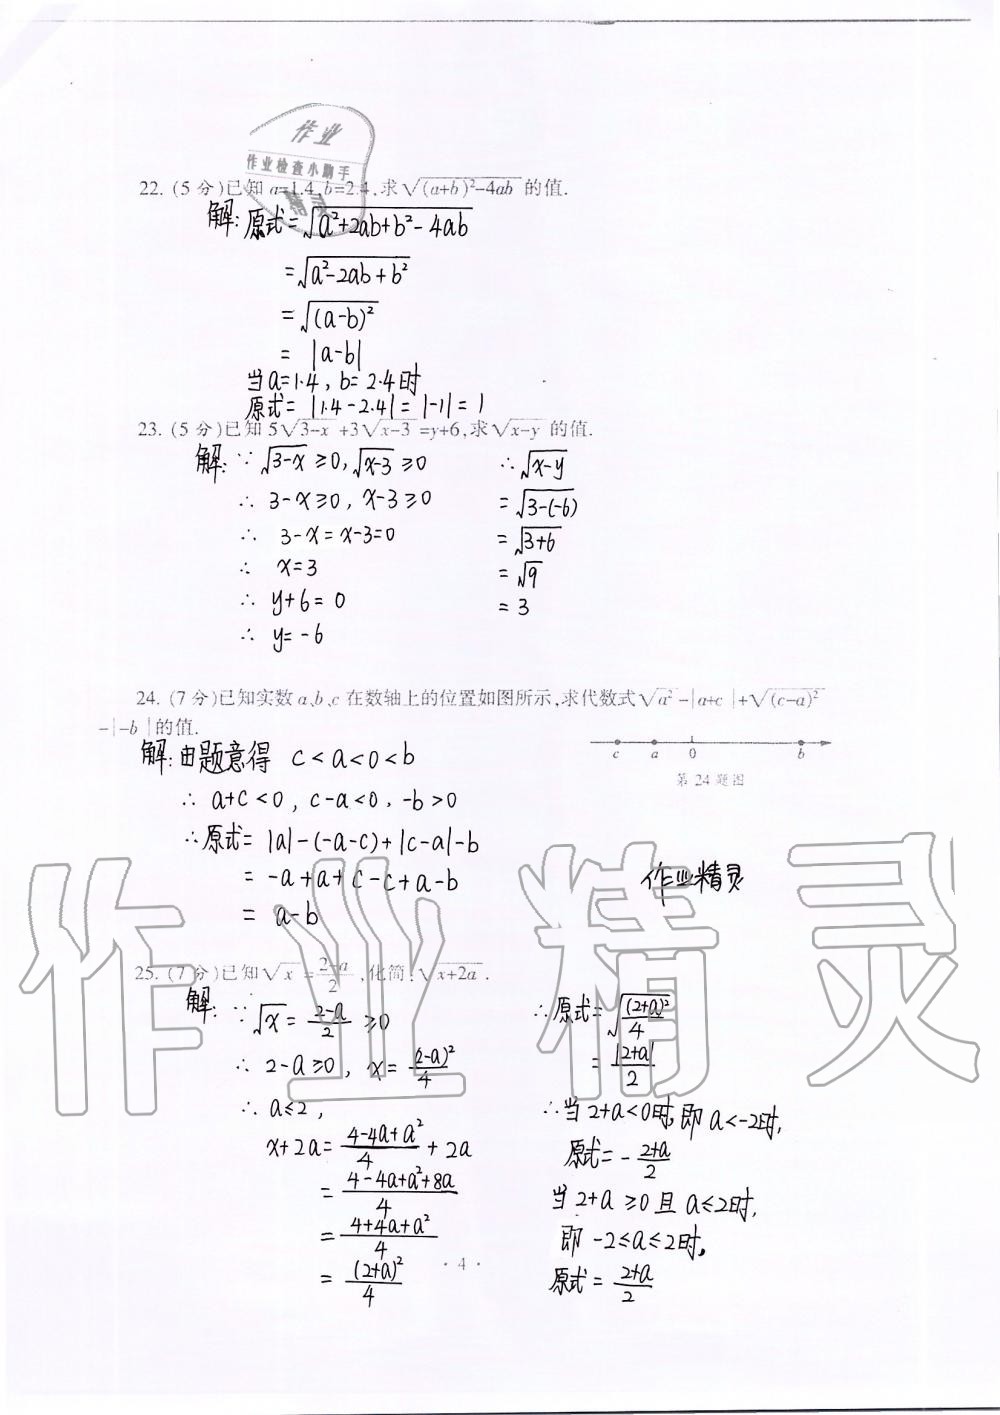 作业
作业检查小助手
精灵
22. (5分)已知 a=1.4,b=2.4,求√((a+b)²-4ab) 的值.
解: 原式=√(a²+2ab+b²-4ab)
=√(a²-2ab+b²)
=√((a-b)²)
= |a-b|
当a=1.4, b=2.4时
原式= |1.4-2.4|=|-1|=1
23. (5分)已知 5√(3-x) +3√(x-3) =y+6,求√(x-y) 的值.
解: ∵ √(3-x) ≥0, √(x-3) ≥0
∴ 3-x≥0, x-3≥0
∴ 3-x=x-3=0
∴ x=3
∴ y+6=0
∴ y=-6
∴ √(x-y)
= √(3-(-6))
= √(3+6)
= √9
= 3
24. (7分)已知实数 a、b、c 在数轴上的位置如图所示,求代数式√(a²) -|a+c|+√((c-a)²)
-|-b|的值.
c a 0 b
第24题图
解: 由题意得 c<a<0<b
∴ a+c<0, c-a<0, -b>0
∴原式= |a|-(-a-c)+|c-a|-b
= -a+a+c-c+a-b
= a-b
作业精灵
作业精灵
25. (7分)已知√x = (2-a)/2 ,化简:√(x+2a) .
解: ∵ √x = (2-a)/2 ≥0
∴ 2-a≥0, x= (2-a)²/4
∴ a≤2,
x+2a= (4-4a+a²)/4 +2a
= (4-4a+a²+8a)/4
= (4+4a+a²)/4
= (2+a)²/4
∴原式= √((2+a)²/4)
= |2+a|/2
∴当2+a<0时,即a<-2时,
原式= - (2+a)/2
当2+a≥0且a≤2时,
即-2≤a≤2时,
原式= (2+a)/2
· 4 ·